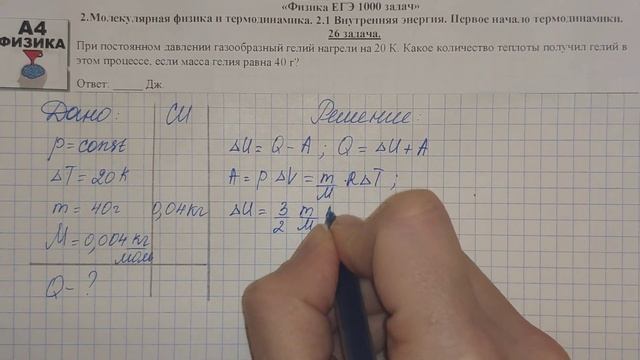 «Физика ЕГЭ 1000 задач»
2.Молекулярная физика и термодинамика. 2.1 Внутренняя энергия. Первое начало термодинамики.
26 задача.
А4
ФИЗИКА
При постоянном давлении газообразный гелий нагрели на 20 К. Какое количество теплоты получил гелий в
этом процессе, если масса гелия равна 40 г?
Ответ: ______ Дж.
Дано: СИ
p=const
ΔT=20К
m=40г 0,04кг
M=0,004 кг/моль
Q-?
Решение:
ΔU=Q-A; Q=ΔU+A
A=pΔV=m/M·RΔT;
ΔU=3/2 m/M